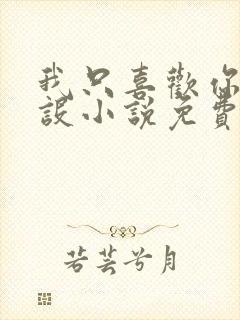 我只喜歡你
設小說免費
若芸兮月